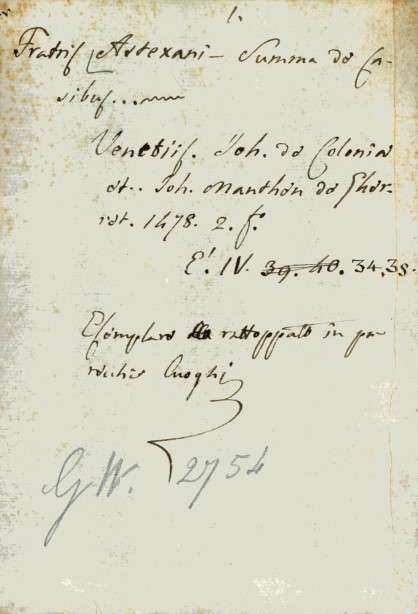 1.
Fratris Astexani – Summa de Ca-
sibus...
Venetiis. Joh. de Colonia
et.. Joh. Manthen de Gher-
ret. 1478. 2. f.º
E!. IV. 39. 40. 34.38.
Esemplare rattoppato in pa
recchi luoghi
GW. 2754